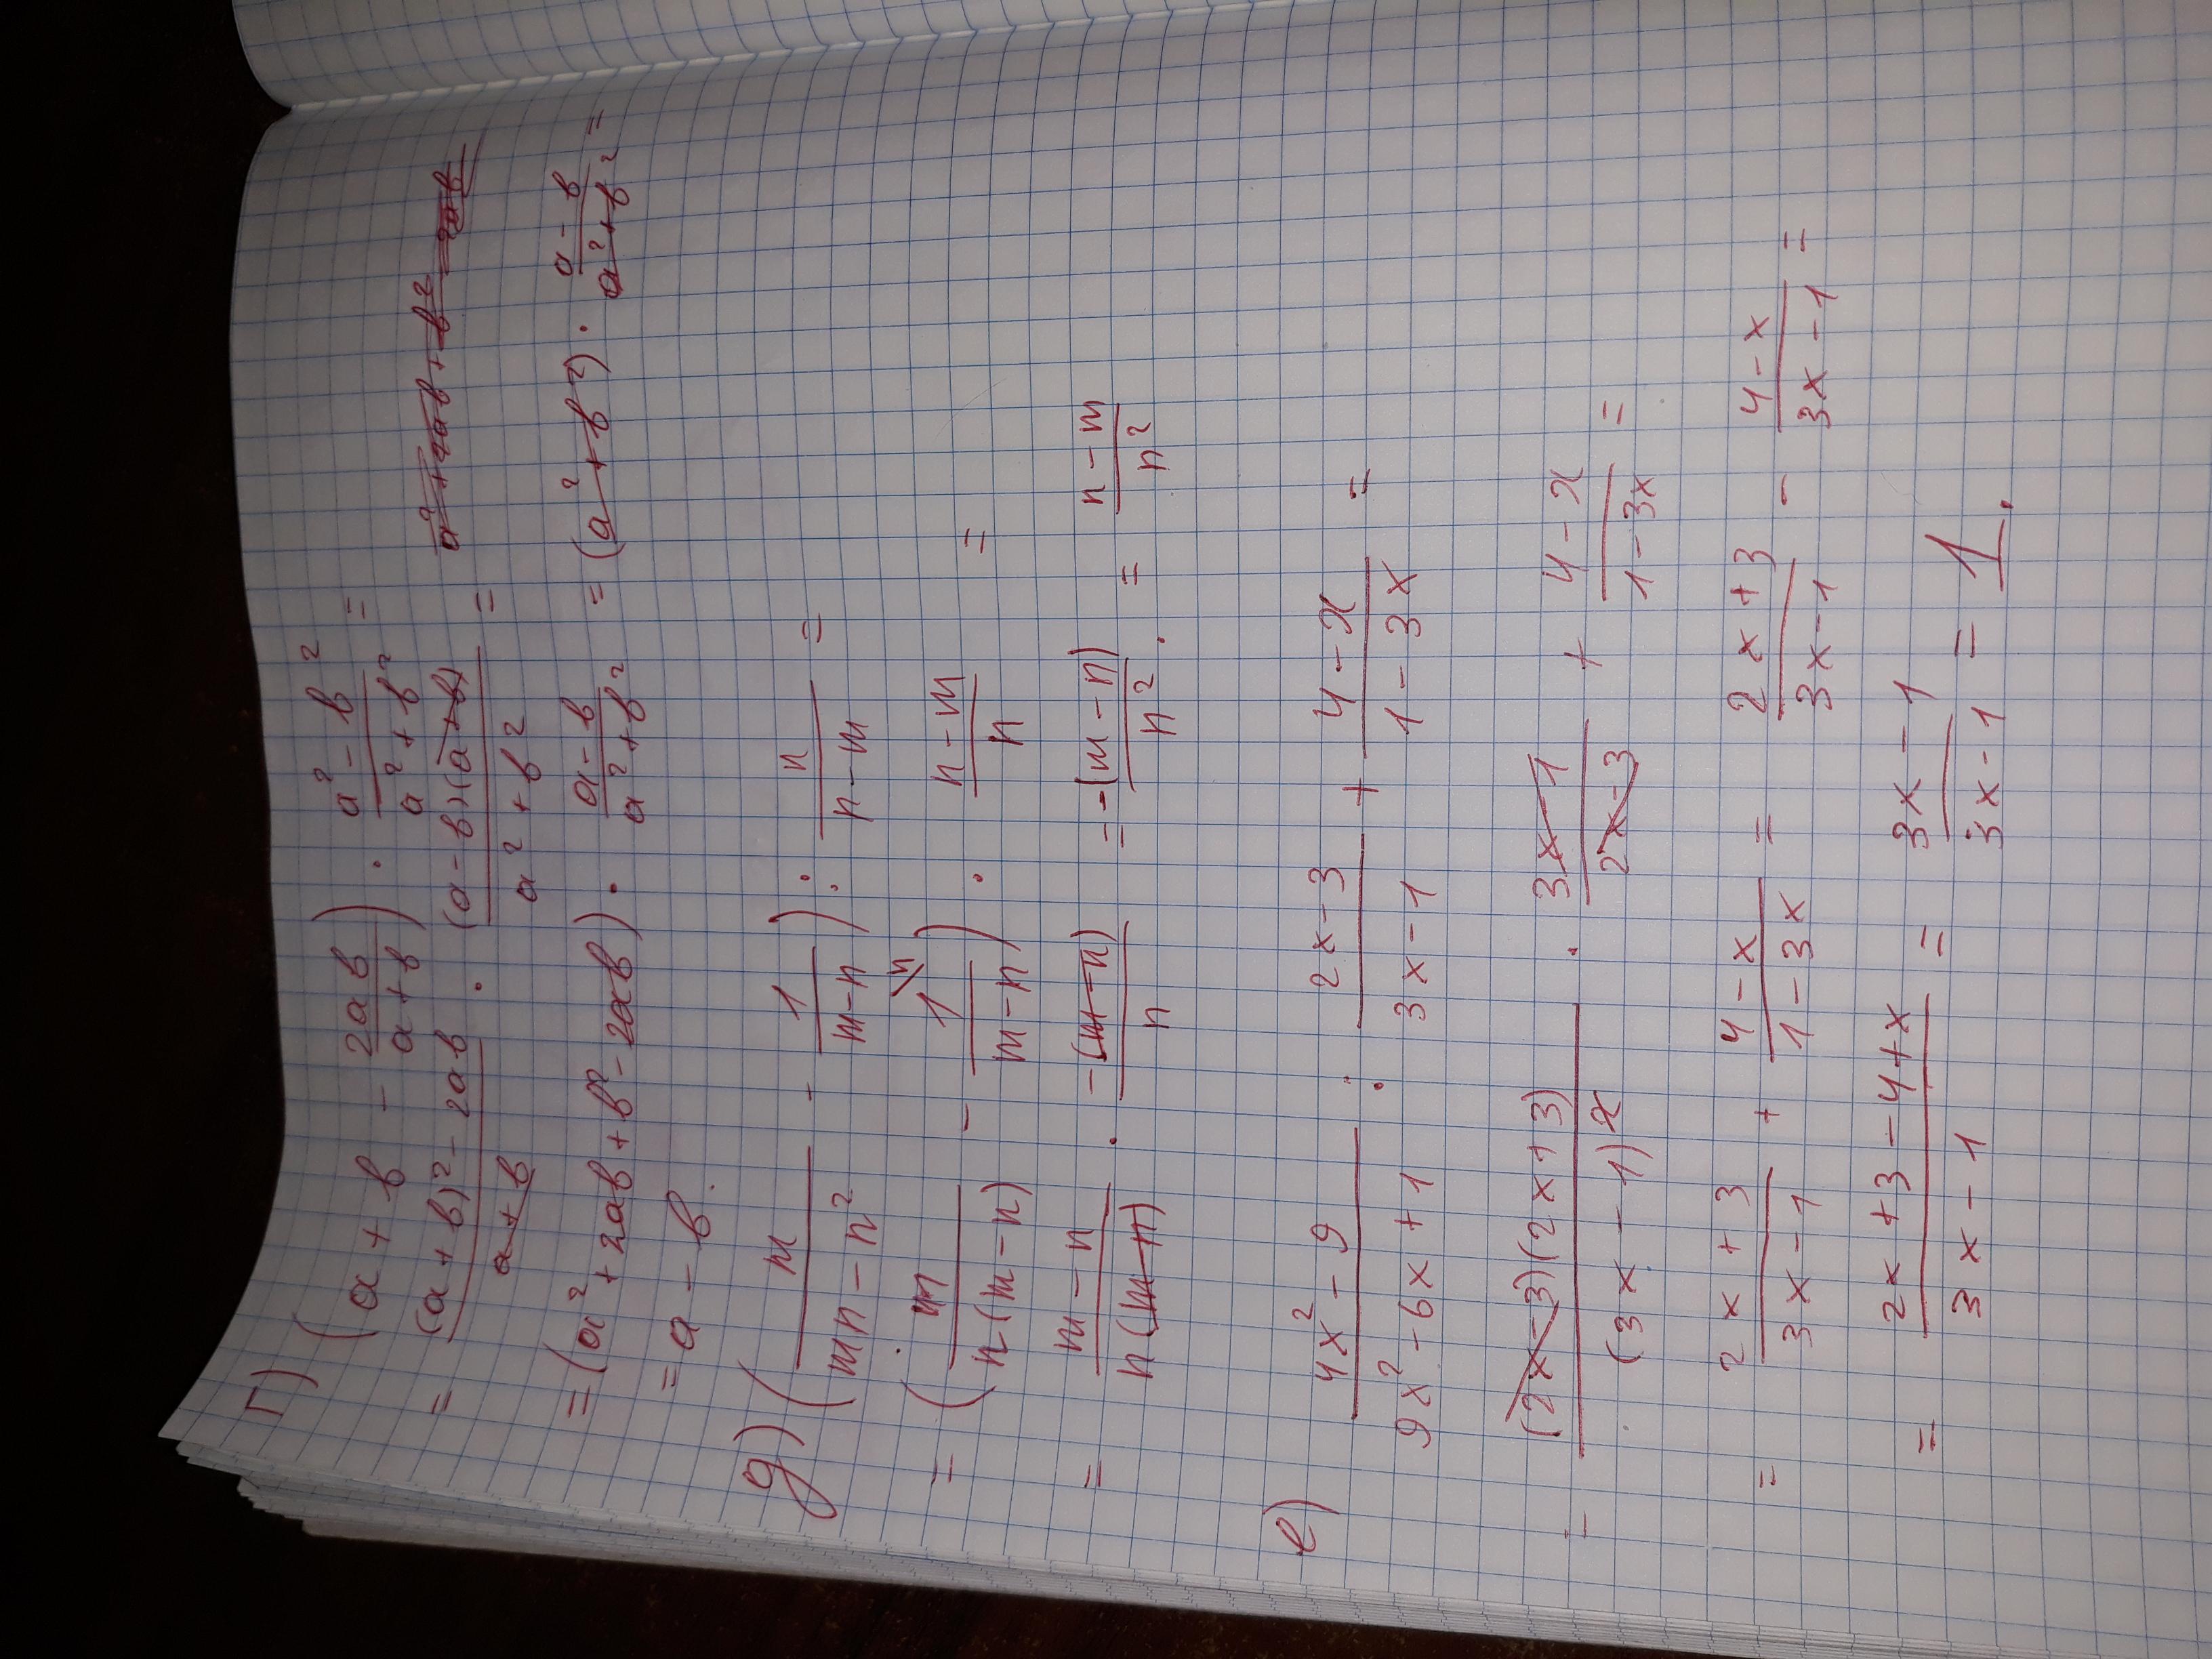 г) (a + b - 2ab/(a+b)) · (a² - b²)/(a² + b²) =
= ((a + b)² - 2ab)/(a + b) · ((a - b)(a + b))/(a² + b²) =
= (a² + 2ab + b² - 2ab) · (a - b)/(a² + b²) = (a² + b²) · (a - b)/(a² + b²) =
= a - b.
g) (m/(mn - n²) - 1/(m - n)) : n/(n - m) =
= (m/(n(m - n)) - 1\n/(m - n)) · (n - m)/n =
= (m - n)/(n(m - n)) · (-(m - n))/n = (-(m - n))/n² = (n - m)/n².
e) (4x² - 9)/(9x² - 6x + 1) : (2x - 3)/(3x - 1) + (4 - x)/(1 - 3x) =
= ((2x - 3)(2x + 3))/(3x - 1)² · (3x - 1)/(2x - 3) + (4 - x)/(1 - 3x) =
= (2x + 3)/(3x - 1) + (4 - x)/(1 - 3x) = (2x + 3)/(3x - 1) - (4 - x)/(3x - 1) =
= (2x + 3 - 4 + x)/(3x - 1) = (3x - 1)/(3x - 1) = 1.